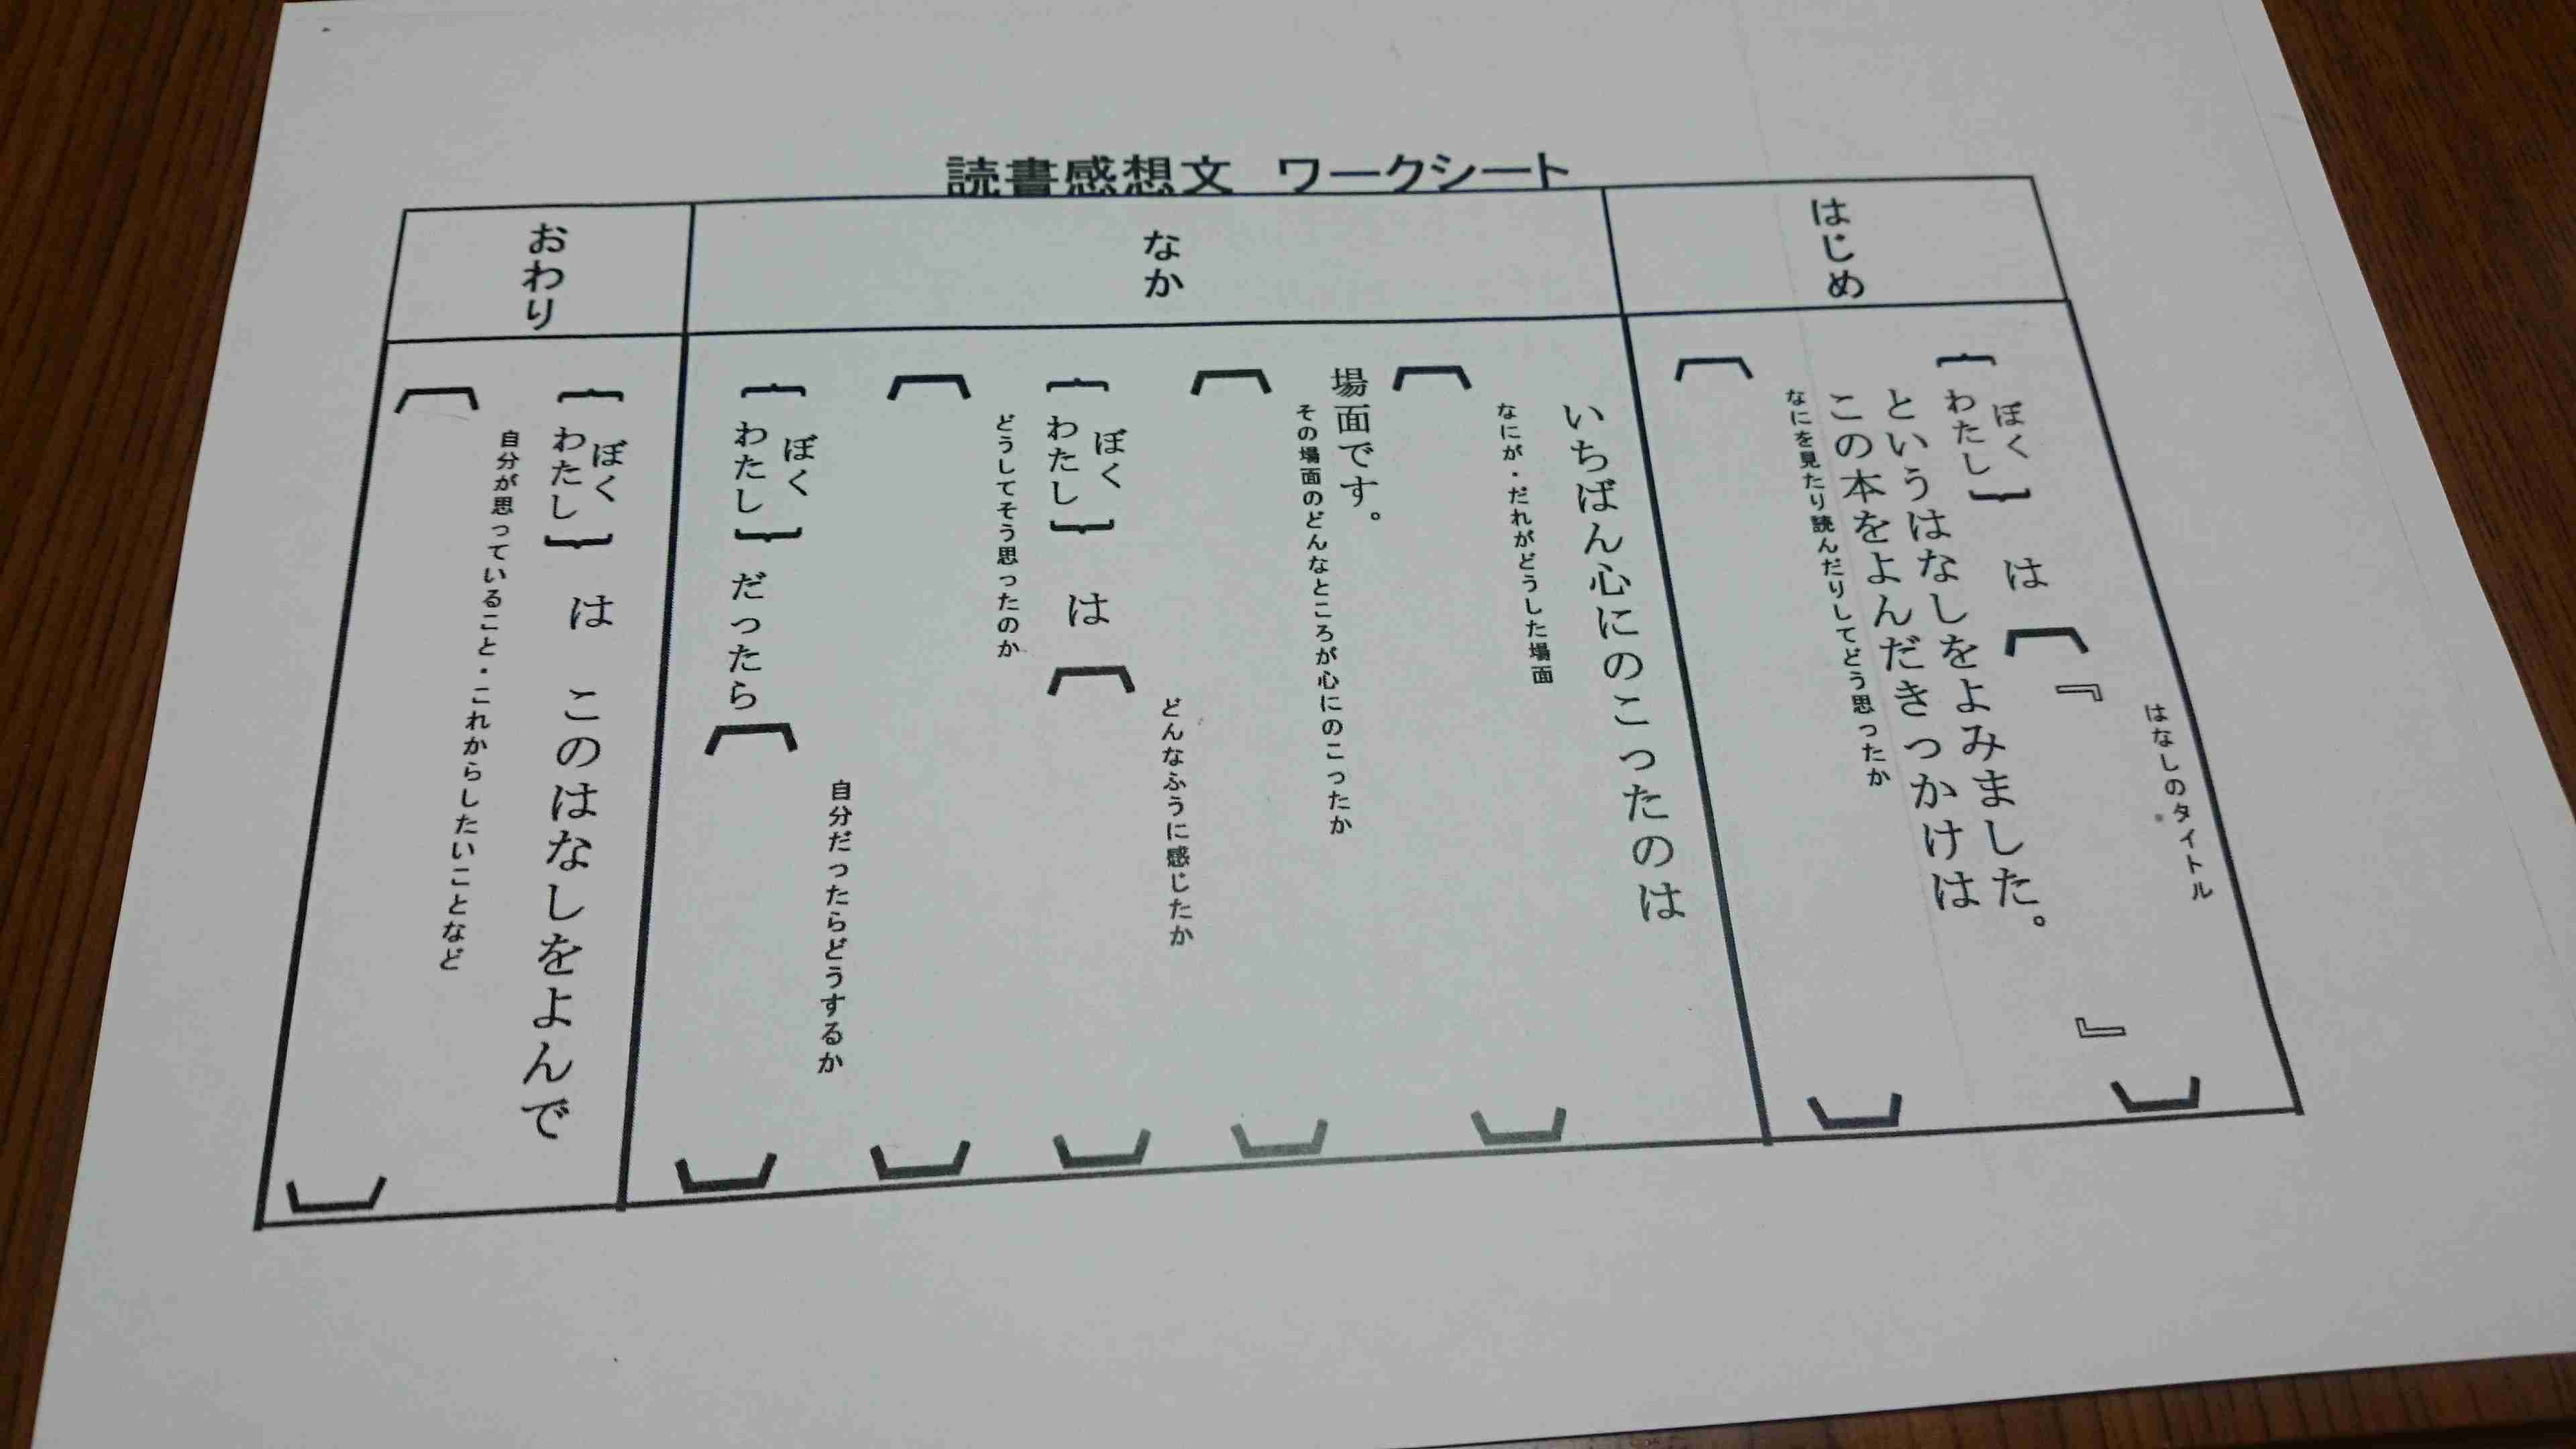 読書感想文　ワークシート
はじめ
はなしのタイトル
ぼく
わたし
は
『　』
というはなしをよみました。
この本をよんだきっかけは
なにを見たり読んだりしてどう思ったか
なか
いちばん心にのこったのは
なにが・だれがどうした場面
場面です。
その場面のどんなところが心にのこったか
どんなふうに感じたか
ぼく
わたし
は
どうしてそう思ったのか
自分だったらどうするか
ぼく
わたし
だったら
おわり
ぼく
わたし
は　このはなしをよんで
自分が思っていること・これからしたいことなど